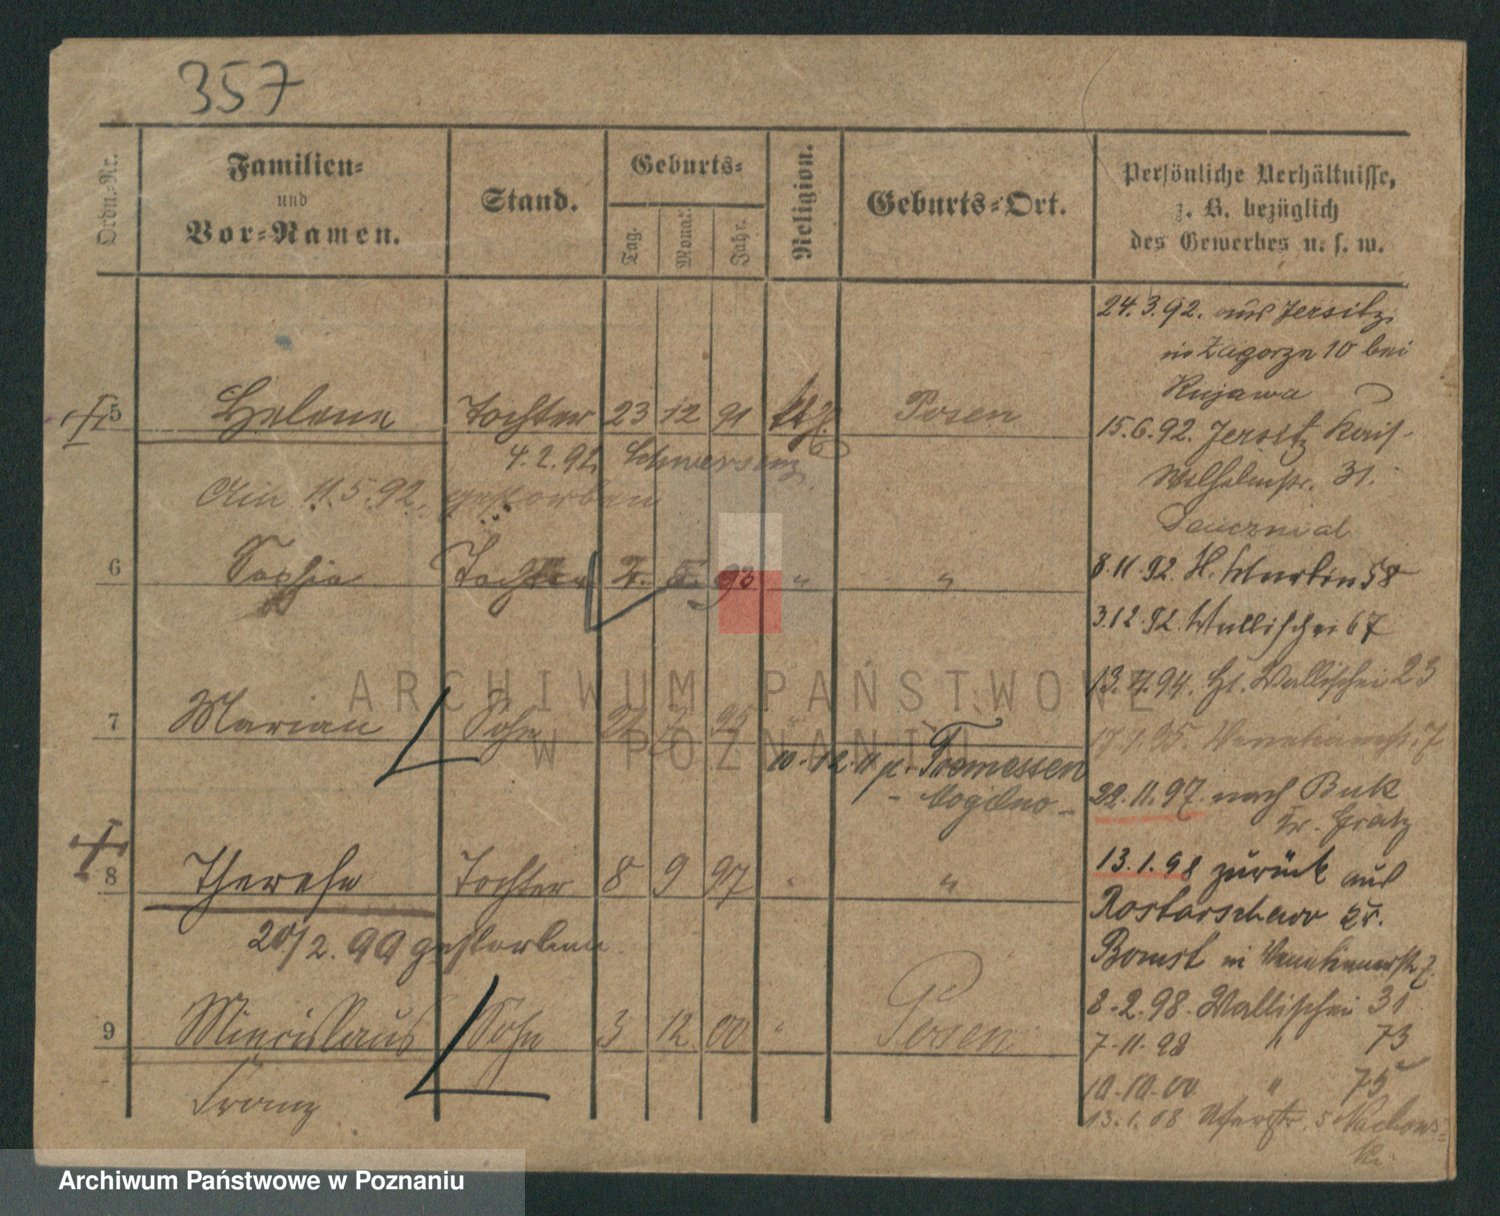 357
Ordn.-Nr.
Familien-
und
Vor-Namen.
Stand.
Geburts-
Tag.
Monat.
Jahr.
Religion.
Geburts-Ort.
Persönliche Verhältnisse,
z. B. bezüglich
des Gewerbes u. s. w.
5 Helene Tochter 23 12 91 kth. Posen
4.2.92 Schwersenz
Am 11.5.92. gestorben
6 Sophie Tochter 7. 5. 93 " "
7 Marian Sohn 95 "
10.12.11 p. Tremessen
- Mogilno -
8 Therese Tochter 8 9 97 " "
20/2.99 gestorben
9 Miecislaus Sohn 3 12 00 " Posen
Franz
24.3.92. aus Jersitz
in Zagorze 10 bei
Kujawa
15.6.92. Jersitz Kais.
Wilhelmstr. 31.
8.11.92. St. Martin 58
3.12.92. Wallischei 67
13.7.94. Wallischei 23
17.1.95. Venetianerstr. 7
22.11.97. nach Buk
Kr. Grätz
13.1.98 zurück aus
Rostarschewo Kr.
Bomst in Venetianerstr. 7.
8.2.98. Wallischei 31
7.11.98 " 73
10.10.00 " 75
13.1.08 5
ARCHIWUM PAŃSTWOWE
W POZNANIU
Archiwum Państwowe w Poznaniu